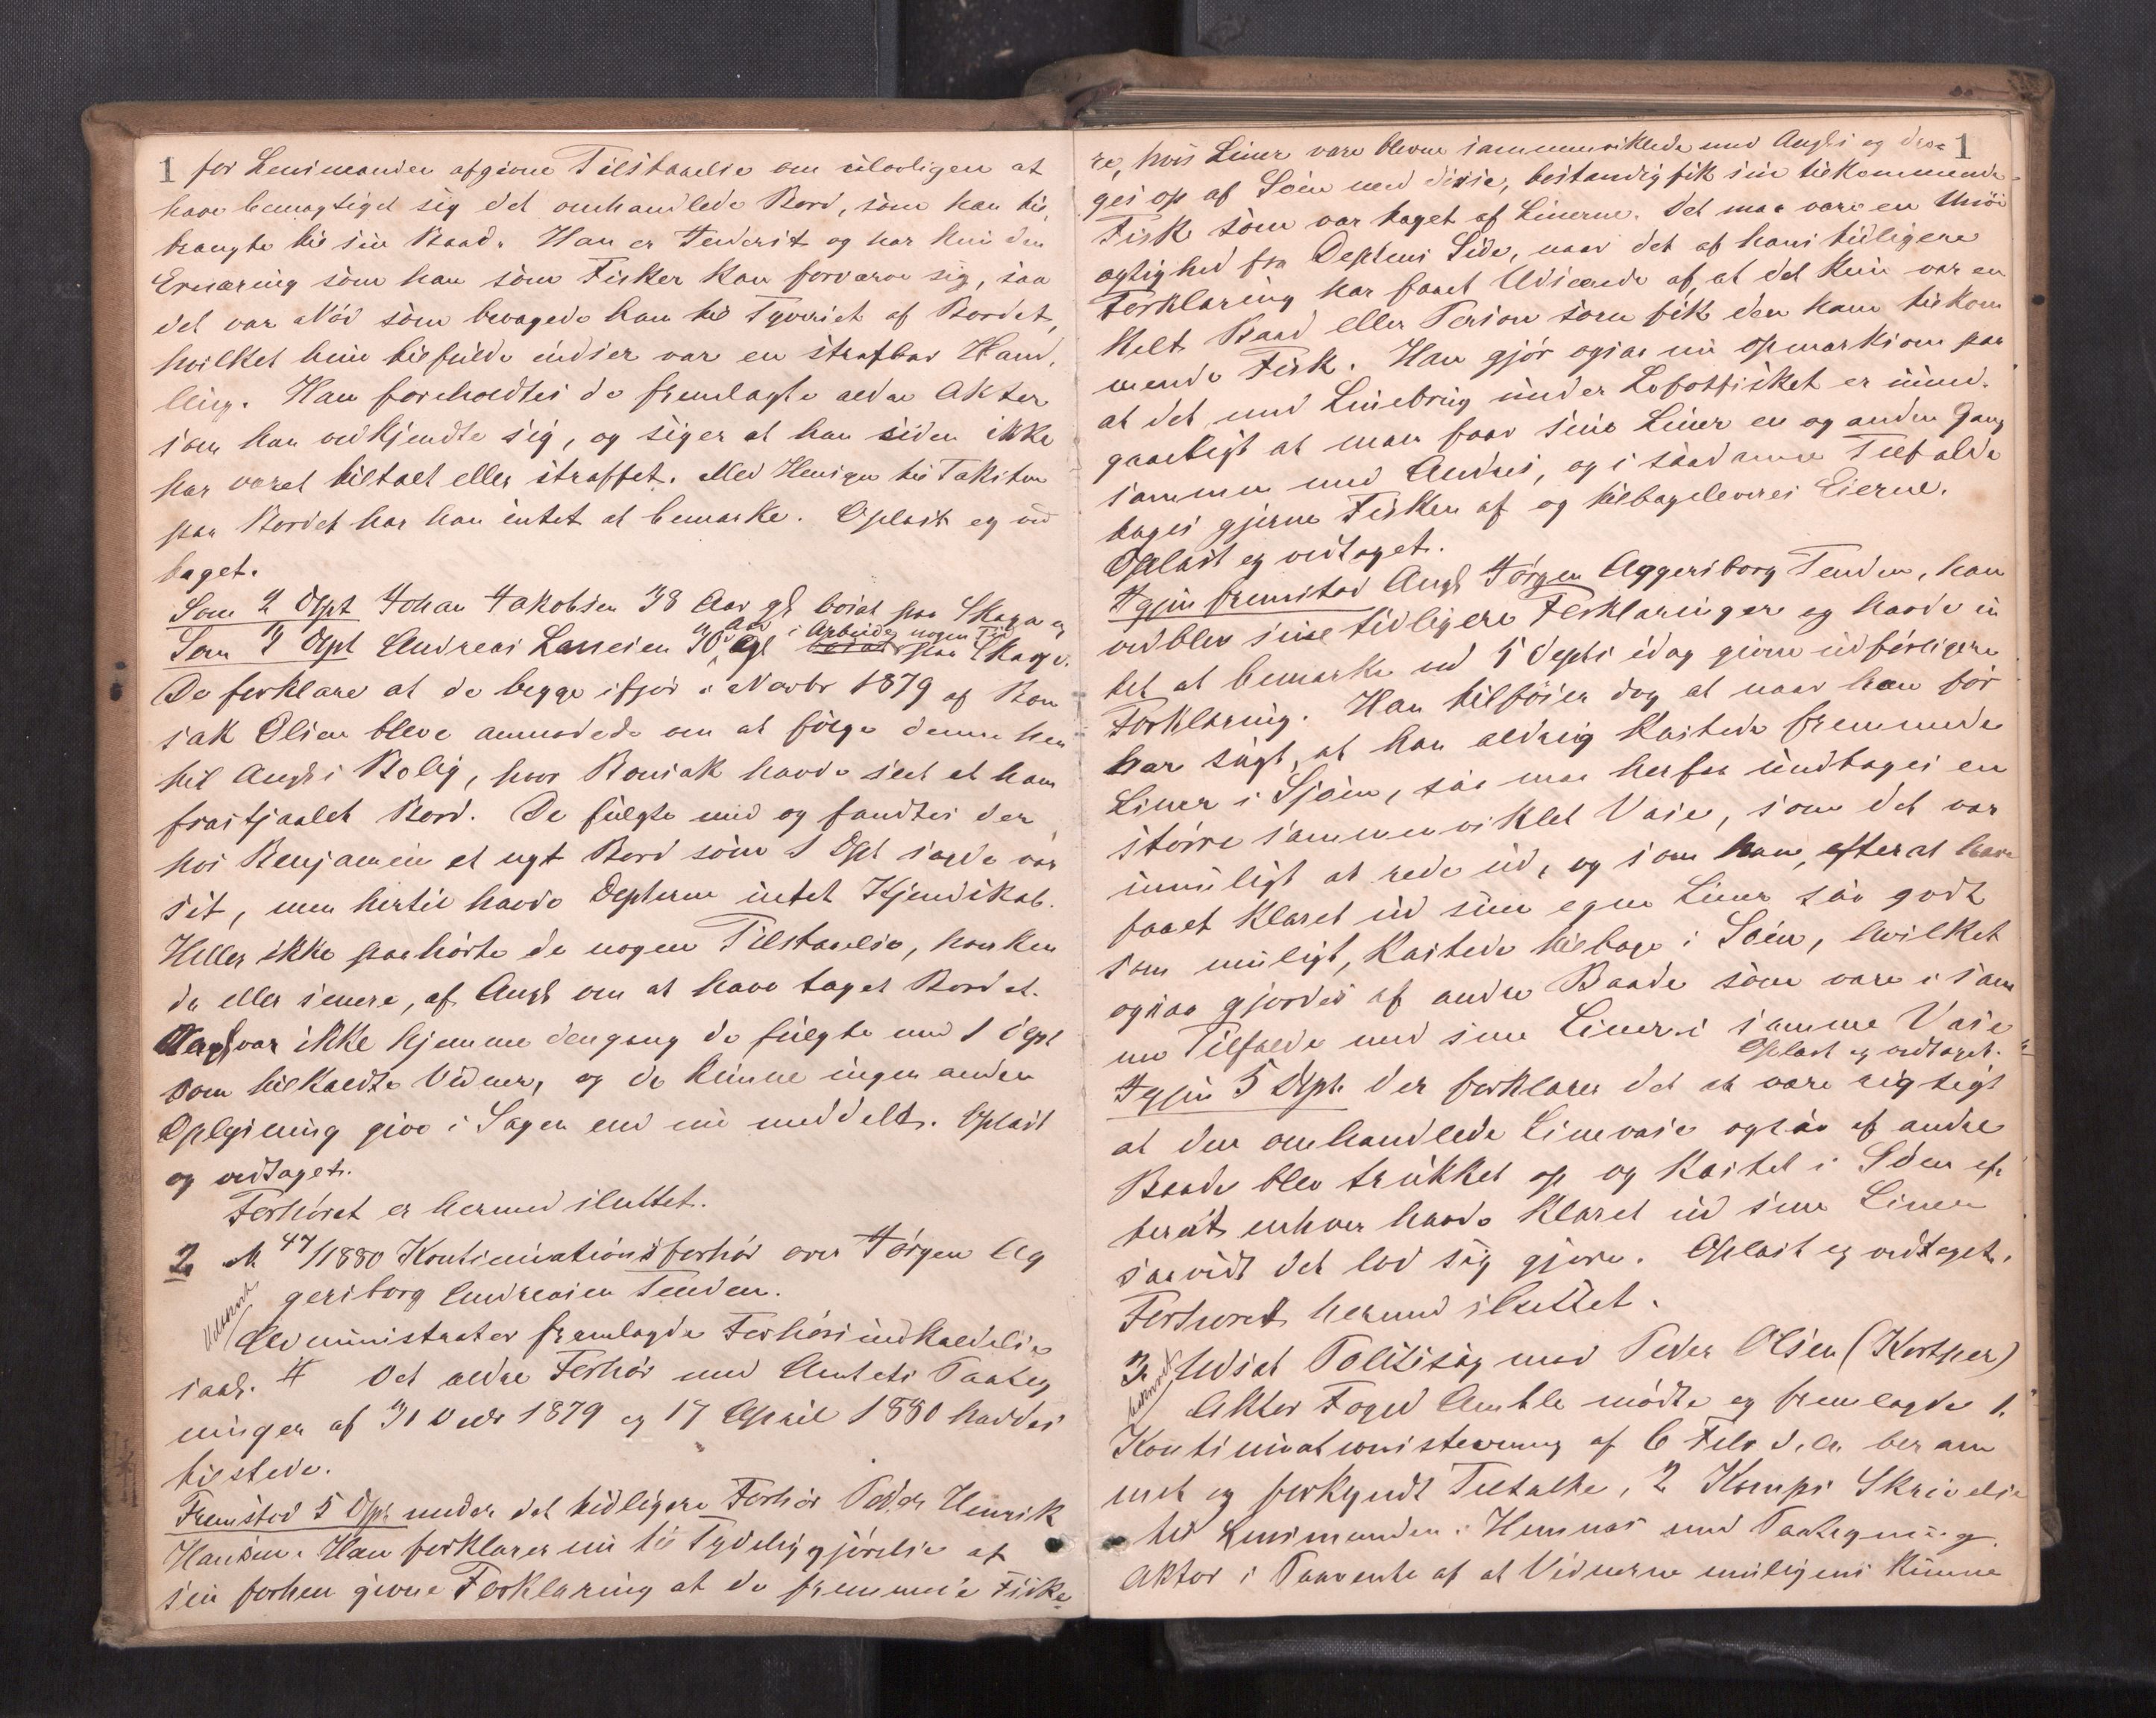 1
for Lensmanden afgivne Tilstaaelse om ulovligen at
have bemægtiget sig det omhandlede Bord, som han til
trængte til sin Baad. Han er Inderist og har kun den
Ernæring som han som Fisker kan forværve sig, saa
det var Nød som bevægede ham til Tyveriet af Bordet,
hvilket hun tilfulde indser var en strafbar Hand,
ling. Han foreholdtes de fremlagte ældre Akter
som han vedkjendte sig, og siger at han siden ikke
har været tiltalt eller straffet. Med Hensyn til Taksten
paa Bordet har han intet at bemærke. Oplæst og ved
taget.
Som 2 Dpt Johan Jakobsen 38 Aar gl boiat paa Skaga og
Som 3 Dpt Andreas Larseien 30 Aar gl i Arbeide nogen Tid paa Skaga.
De forklare at de begge ifjor i Novbr 1879 af Bon
sak Olsen bleve anmodede om at følge denne hen
til Angls Bolig, hvor Bonsak havde seet et ham
frastjaalet Bord. De fulgte med og fandtes der
hos Benjamin et nyt Bord som 1 Dpt sagde var
sit, men hertil havde Depterne intet Kjendskab.
Heller ikke paahørte de nogen Tilstaaelse, hverken
da eller senere, af Angl om at have taget Bordet.
Angl var ikke hjemme dengang de fulgte med 1 Dpt
som tilkaldte Vidner, og de kunne ingen anden
Oplysning give i Sagen end nu meddelt. Oplæst
og vedtaget.
Forhøret er hermed sluttet.
2 No 47/1880 Kontinuationsforhør over Jørgen Ag
gersborg Andreasen Tenden.
Udskrevet
Administrator fremlagde Forhørsindkaldelse
saal. # Det ældre Forhør med Amtets Paateg
ninger af 31 Decbr 1879 og 17 April 1880 haddes
tilstede.
Fremstod 5 Dpt under det tidligere Forhør Peder Henrik
Hansen. Han forklarer nu til Tydeliggjørelse af
sin forhen givne Forklaring at de fremmede Fiske
1
re, hvis Liner vare blevne sammenviklede med Angls og dra
ges op af Søen med disse, bestandig fik sin tilkommende
Fisk som var taget af Linerne. Det maa være en Unøi
agtighed fra Deptens Side, naar det af hans tidligere
Forklaring har faaet Udseende af, at det kun var en
kelt Baad eller Person som fik den ham tilkom
mende Fisk. Han gjør ogsaa nu opmærksom paa
at det med Linebrug under Lofotfisket er uund,
gaaeligt at man faar sine Liner en og anden Gang
sammen med Andres, og i saadanne Tilfælde
tages gjerne Fisken af og tilbageleveres Eierne.
Oplæst og vedtaget.
Igjen fremstod Angl Jørgen Aggersborg Tenden, han
vedblev sine tidligere Forklaringer og havde in
tet at bemærke ved 5 Depts idag givne udførligere
Forklaring. Han tilføier dog at naar han før
har sagt, at han aldrig kastede fremmede
Liner i Sjøen, saa maa herfra undtages en
større sammenviklet Vase, som det var
umuligt at rede ud, og som han, efter at have
faaet klaret ud sine egne Liner saa godt
som muligt, kastede tilbage i Søen, hvilket
ogsaa gjordes af andre Baade som vare i sam
me Tilfælde med sine Liner i samme Vase
Oplæst og vedtaget.
Igjen 5 Dpt der forklarer det at være rigtigt
at den omhandlede Linevase ogsaa af andre
Baade blev trukket op og kastet i Søen ef
terat enhver havde klaret ud sine Liner
saavidt det lod sig gjøre. Oplæst og vedtaget.
Forhøret hermed sluttet.
3. Udsat Politisag mod Peder Olsen (Kortper)
Aktor Foged Amble mødte og fremlagde 1.
Kontinuationsstevning af 6 Febr d. A. beram
met og forkyndt Tiltalte, 2 Komps Skrivelse
til Lensmanden i Hemnes med Paategning.
Aktor i Paavente af at Vidnerne muligens kunne